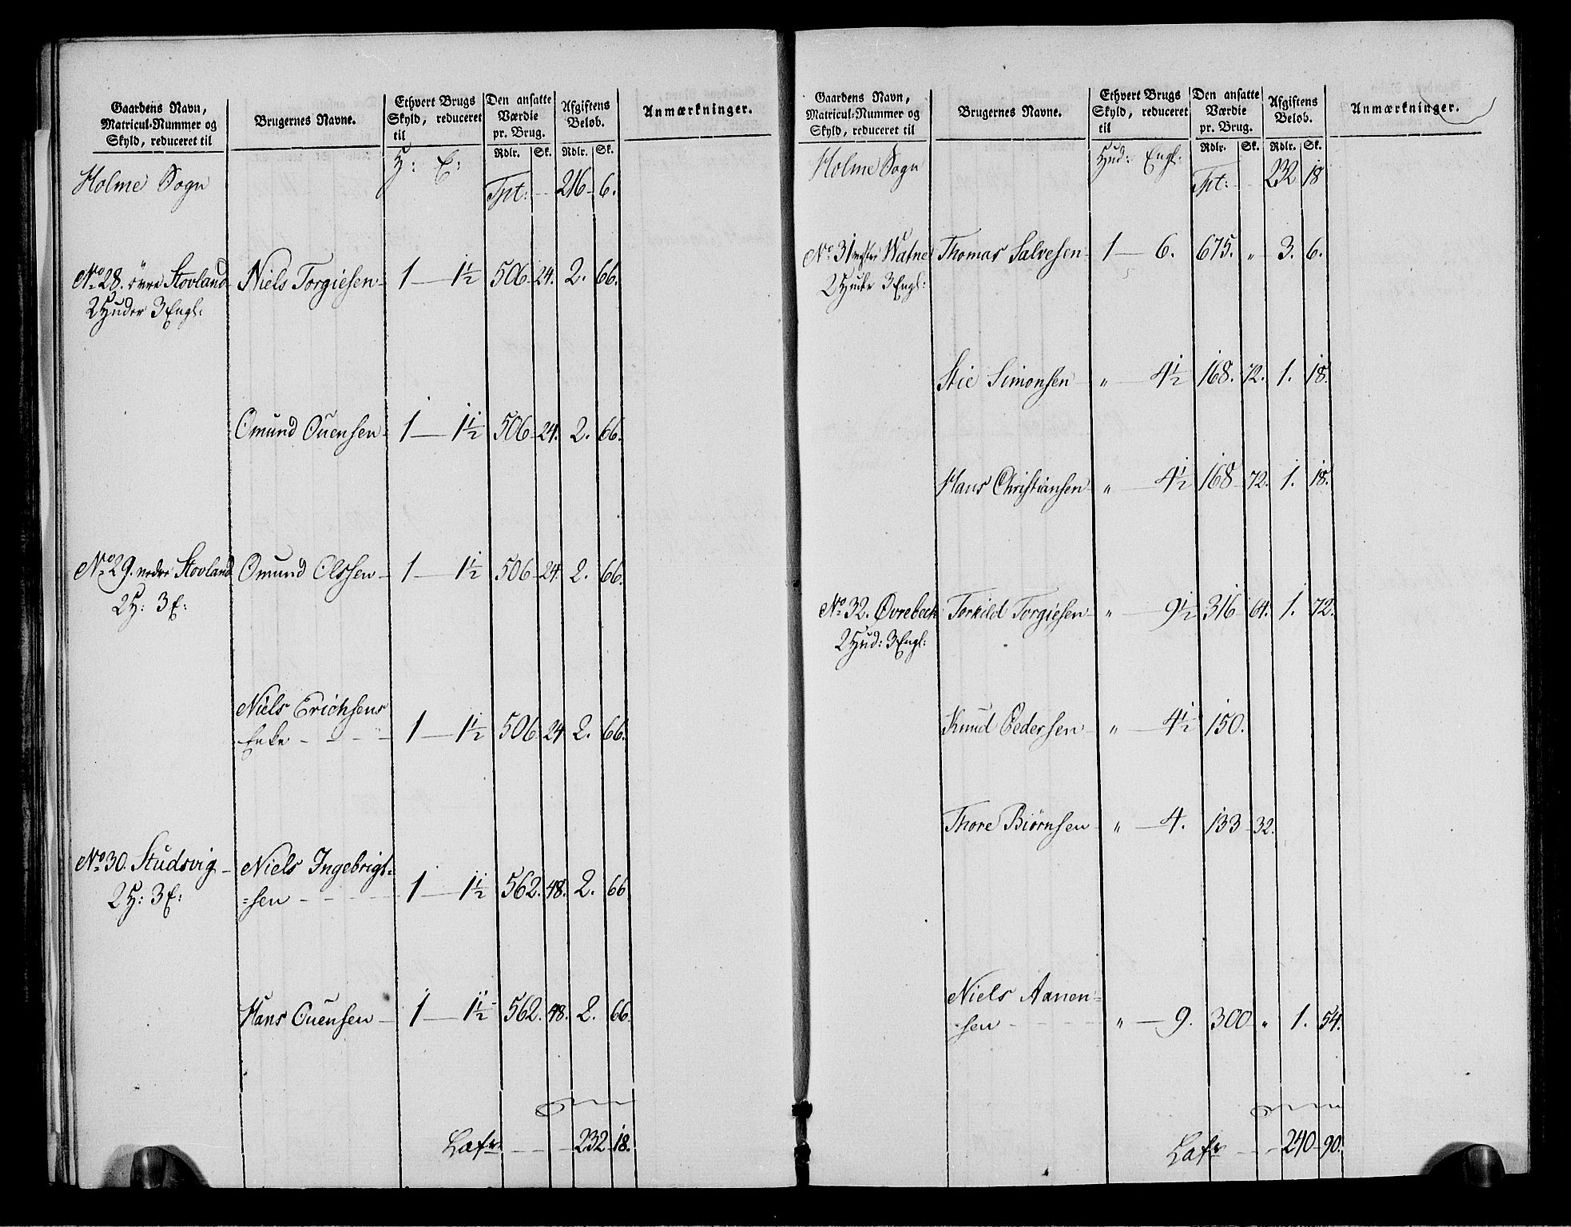 Gaardens Navn, Matricul-Nummer og Skyld, reduceret til | Brugernes Navne. | Ethvert Brugs Skyld, reduceret til | Den ansatte Værdie pr. Brug. Rdlr. Sk. | Afgiftens Beløb. Rdlr. Sk. | Anmærkninger.
Holme Sogn H: E: Tpt: - 216 - 6.
No 28. övre Stovland Niels Torgiesen 1 — 1½ 506 24. 2. 66.
2 Huder 3 Engl:
Omund Ouensen 1 — 1½ 506 24. 2. 66.
No 29. nedre Stovland Omund Olssen 1 — 1½ 506 24. 2. 66.
2 H: 3 E:
Niels Erichsens
Enke - - - - 1 — 1½ 506 24 2. 66.
No 30. Studsvig Niels Ingebrigt=
2 H: 3 E: =sen - - - 1 — 1½ 562. 48. 2. 66
Hans Ouensen 1 — 1½ 562. 48. 2. 66
Latr - - - 232 18.
Gaardens Navn, Matricul-Nummer og Skyld, reduceret til | Brugernes Navne. | Ethvert Brugs Skyld, reduceret til | Den ansatte Værdie pr. Brug. Rdlr. Sk. | Afgiftens Beløb. Rdlr. Sk. | Anmærkninger.
Holme Sogn Hud: Engl: Tpt: - 232 18
No 31 Watne Thomas Salvesen 1 — 6. 675. " 3. 6.
2 Huder 3 Engl:
Stie Simonsen " — 4½ 168. 72. 1. 18.
Hans Christiansen " — 4½ 168 72. 1. 18.
No 32. Øvrebeck Torkild Torgiesen " — 9½ 316 64. 1. 72.
2 Hud: 3 Engl:
Knud Pedersen " — 4½ 150.
Thore Biørnsen " — 4. 133 32.
Niels Aanen=
=sen - - - " — 9. 300 " 1. 54.
Latr - - 240 90.